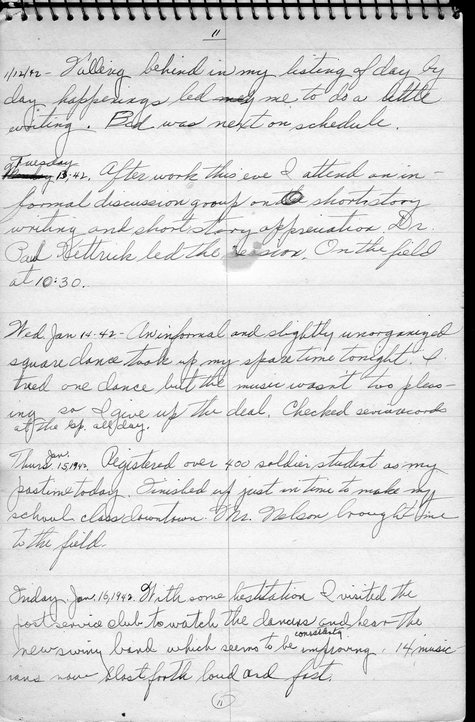 11
1/12/42 - Falling behind in my listing of day by
day happenings led me, to do a little
writing. Bed was next on schedule.
Tuesday
13-42. After work this eve I attend an in-
formal discussion group on short story
writing and short story appreciation. Dr.
Paul Hettrick led the session. On the field
at 10:30.
Wed. Jan 14-42 - An informal and slightly unorganized
square dance took up my spare time tonight. I
tried one dance but the music wasn't too pleas-
ing so I give up the deal. Checked records
at the gp. all day.
Thurs Jan. 15, 1942. Registered over 400 soldier student as my
pastime today. Finished up just in time to make my
school class downtown. Mr. Nelson brought me
to the field.
Friday, Jan. 16, 1942. With some hesitation I visited the
post service club to watch the dancers and hear the
new swing band which seems to be constantly improving. 14 music-
ians now blast forth loud and fast.
11